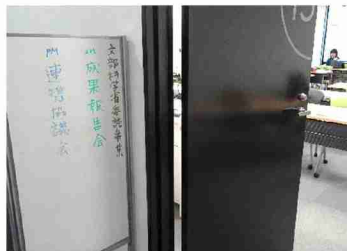 文部科学省委託事業
(1)成果報告会
(2)連携協議会
15